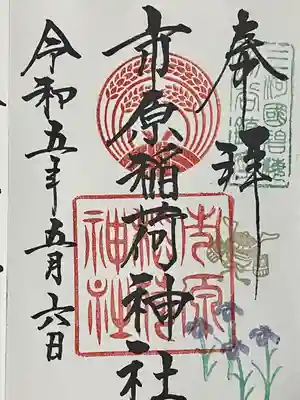 奉拝
市原稲荷神社
令和五年五月六日
市原
稲荷
神社
三河國碧海